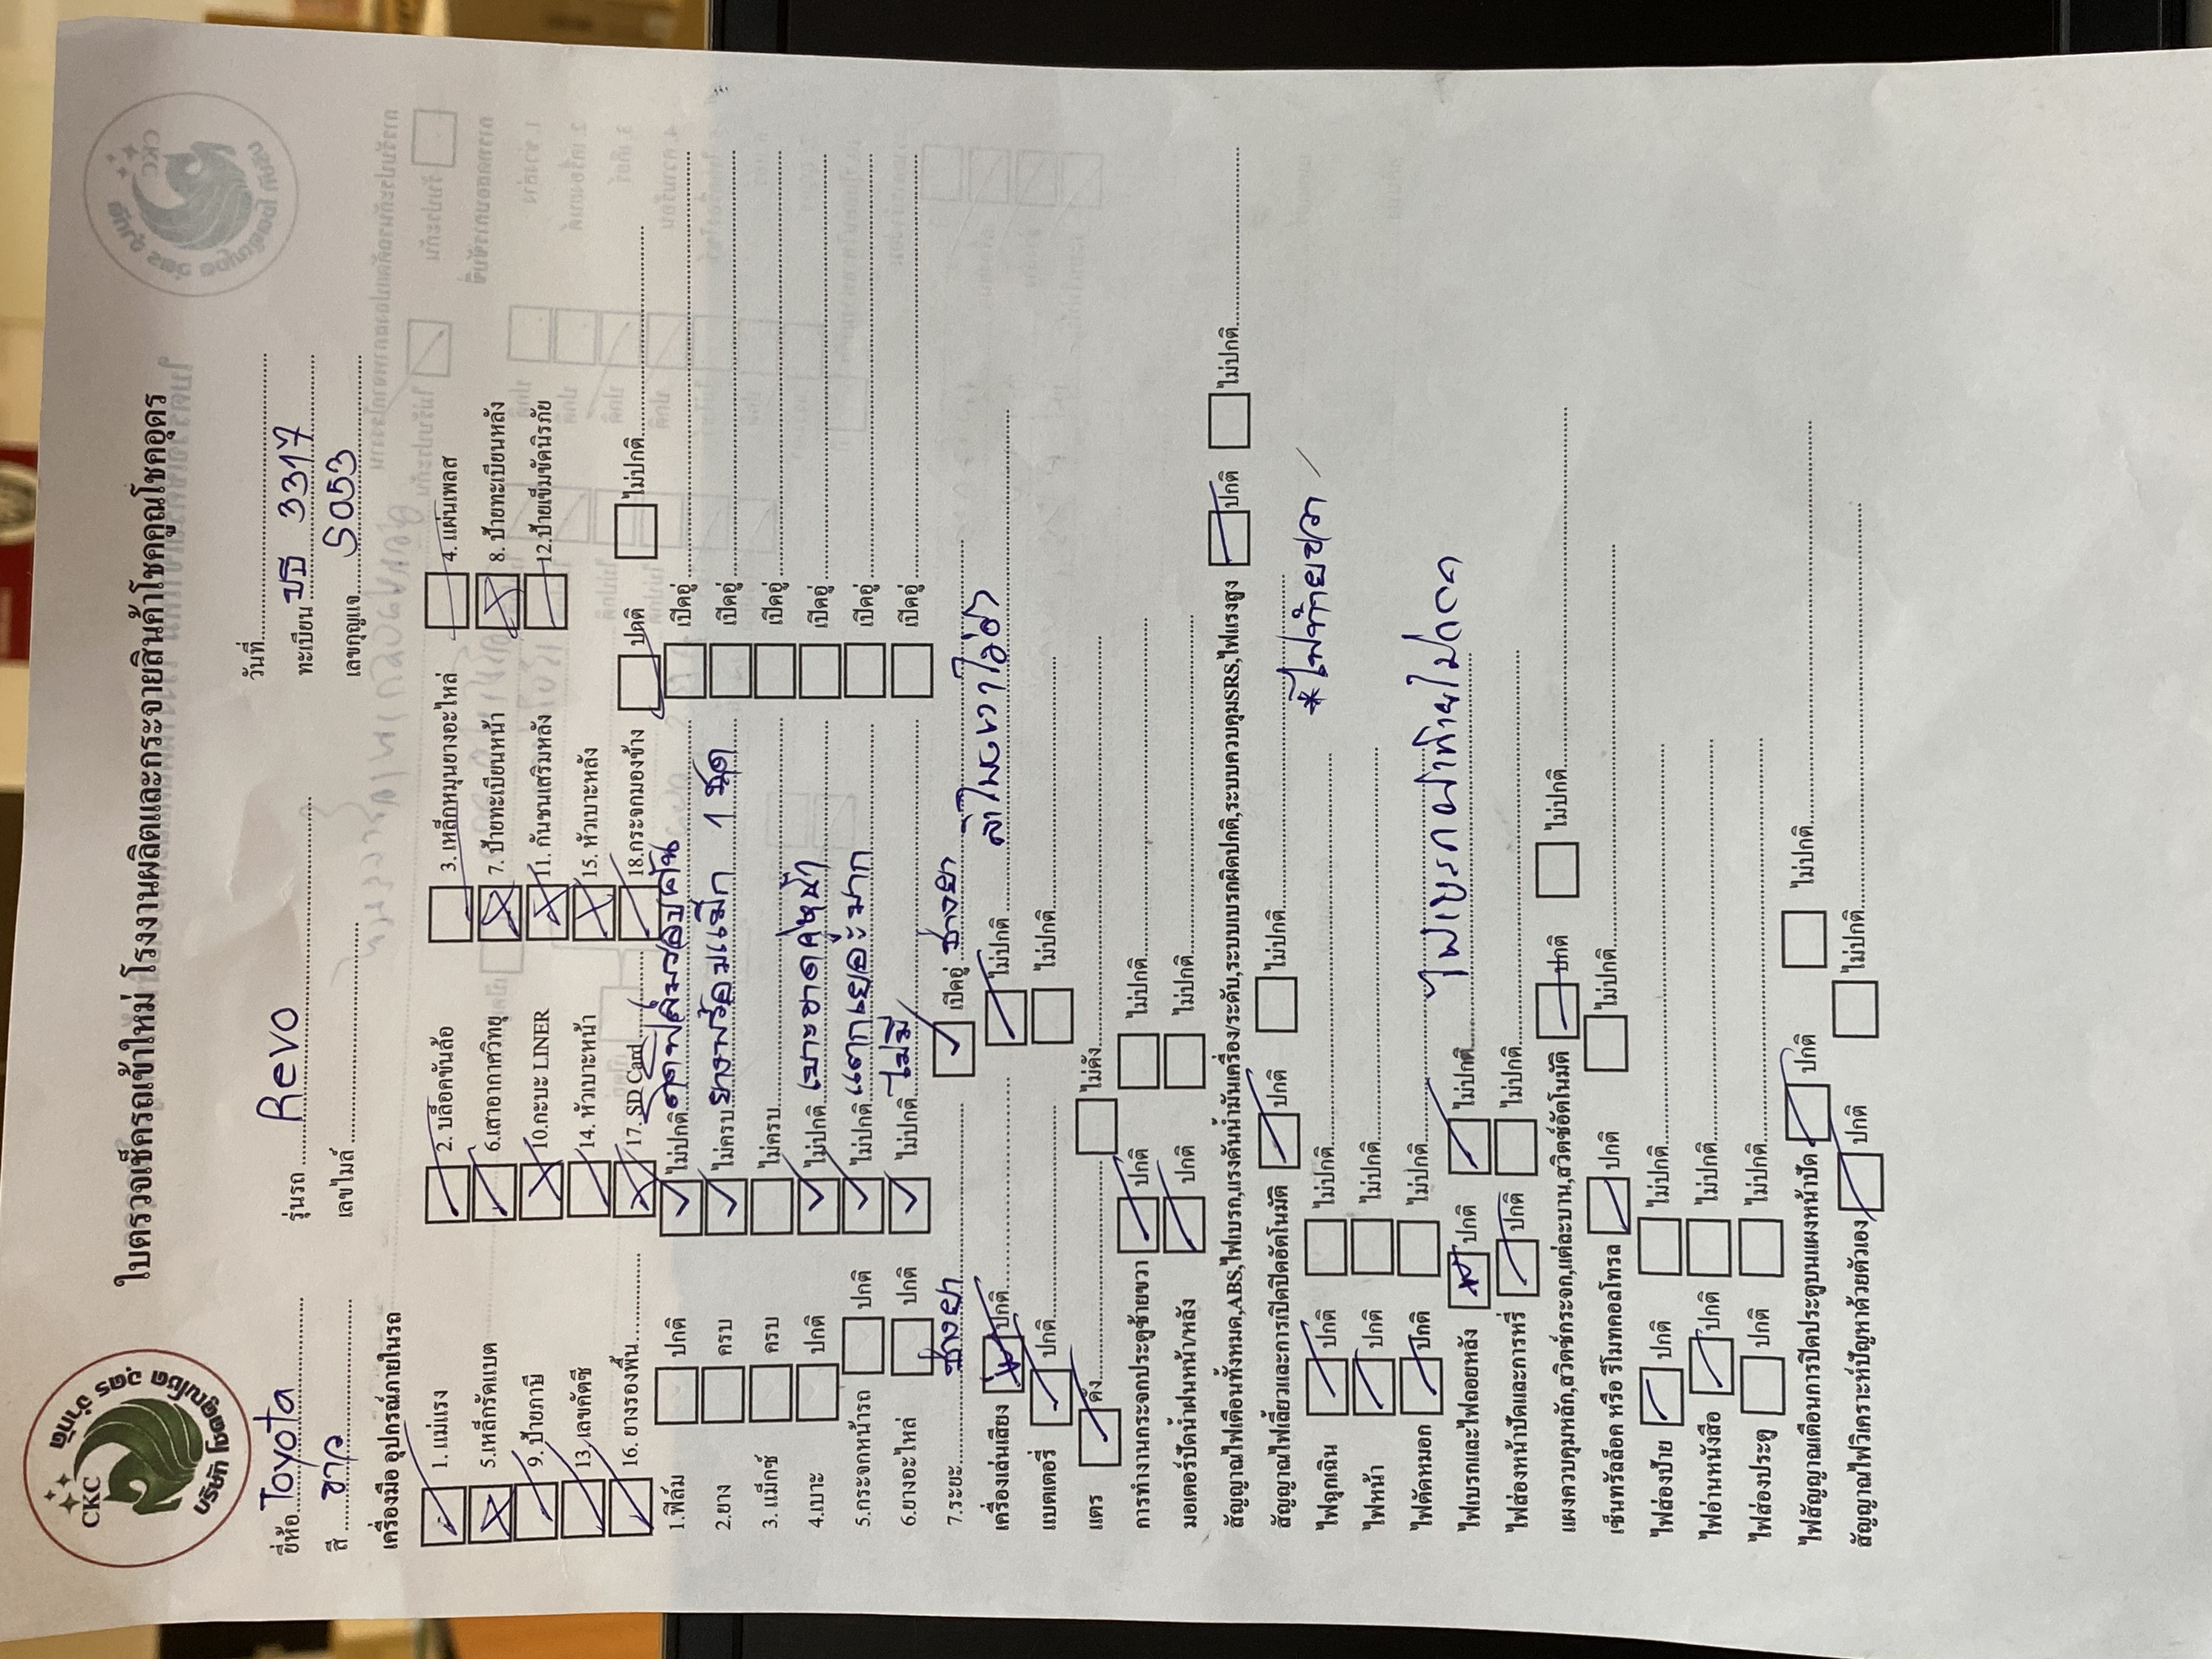 CKC
บริษัท โชคคูณโชค อุดร จำกัด
ใบตรวจเช็ครถเข้าใหม่ โรงงานผลิตและกระจายสินค้าโชคคูณโชคอุดร
วันที่
ยี่ห้อ Toyota รุ่นรถ Revo ทะเบียน 3317
สี ขาว เลขไมล์ เลขกุญแจ 5053
เครื่องมือ อุปกรณ์ภายในรถ
1. แม่แรง 2. บล็อคขันล้อ 3. เหล็กหมุนยางอะไหล่ 4. แผ่นเพลส
5.เหล็กรัดแบต 6.เสาอากาศวิทยุ 7. ป้ายทะเบียนหน้า 8. ป้ายทะเบียนหลัง
9. ป้ายภาษี 10.กะบะ LINER 11. กันชนเสริมหลัง 12.ป้ายเข็มขัดนิรภัย
13. เลขคัตซี 14. หัวเบาะหน้า 15. หัวเบาะหลัง
16. ยางรองพื้น 17. SD Card 18.กระจกมองข้าง ปกติ ไม่ปกติ
1.ฟิล์ม ปกติ ไม่ปกติ ติดฟิล์มรอบคัน เปิดอู่
2.ยาง ครบ ไม่ครบ ยางพร้อมแม็ก 1 ชุด เปิดอู่
3. แม็กซ์ ครบ ไม่ครบ เปิดอู่
4.เบาะ ปกติ ไม่ปกติ เบาะขาดคู่หน้า เปิดอู่
5.กระจกหน้ารถ ปกติ ไม่ปกติ แตกเยอะมาก เปิดอู่
6.ยางอะไหล่ ปกติ ไม่ปกติ ไม่มี เปิดอู่
7.ระยะ ช่างยา เปิดอู่ ช่างยา
เครื่องเล่นเสียง ปกติ ไม่ปกติ
แบตเตอรี่ ปกติ ไม่ปกติ
แตร ดัง ไม่ดัง
การทำงานกระจกประตูซ้ายขวา ปกติ ไม่ปกติ
มอเตอร์ปัดน้ำฝนหน้า/หลัง ปกติ ไม่ปกติ
สัญญาณไฟเตือนทั้งหมด,ABS,ไฟเบรก,แรงดันน้ำมันเครื่อง/ระดับ,ระบบเบรกผิดปกติ,ระบบควบคุมSRS,ไฟแรงสูง ปกติ ไม่ปกติ
สัญญาณไฟเลี้ยวและการเปิดปิดอัตโนมัติ ปกติ ไม่ปกติ
ไฟฉุกเฉิน ปกติ ไม่ปกติ
ไฟหน้า ปกติ ไม่ปกติ
ไฟตัดหมอก ปกติ ไม่ปกติ
ไฟเบรกและไฟถอยหลัง ปกติ ไม่ปกติ
ไฟส่องหน้าปัดและการหรี่ ปกติ ไม่ปกติ
แผงควบคุมหลัก,สวิตซ์กระจก,แต่ละบาน,สวิตซ์อัตโนมัติ ปกติ ไม่ปกติ
เซ็นทรัลล็อค หรือ รีโมทคอลโทรล ปกติ ไม่ปกติ
ไฟส่องป้าย ปกติ ไม่ปกติ
ไฟอ่านหนังสือ ปกติ ไม่ปกติ
ไฟส่องประตู ปกติ ไม่ปกติ
ไฟสัญญาณเตือนการปิดประตูบนแผงหน้าปัด ปกติ ไม่ปกติ
สัญญาณไฟวิเคราะห์ปัญหาด้วยตัวเอง ปกติ ไม่ปกติ